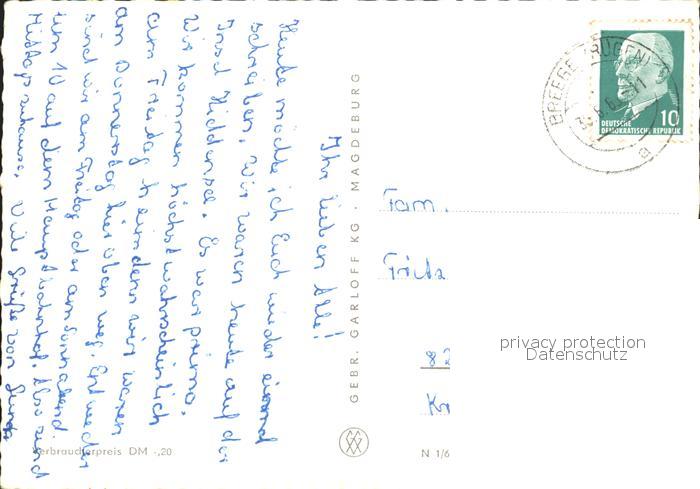 Ihr lieben Alle!
Heute möchte ich Euch wieder einmal
schreiben. Wir waren heute auf der
Insel Hiddensee. Es war prima.
Wir kommen höchstwahrscheinlich
am Freitag
am Donnerstag hier oben weg. Entweder
sind wir am Freitag oder am Sonnabend
um 10 auf dem Hauptbahnhof. Also sind
Mittags zuhause. Viele Grüße von
GEBR. GARLOFF KG · MAGDEBURG
Verbraucherpreis DM -,20
N 1/6
BREEGE (RÜGEN)
DEUTSCHE
DEMOKRATISCHE REPUBLIK
10
Fam.
Fritz
82
privacy protection
Datenschutz